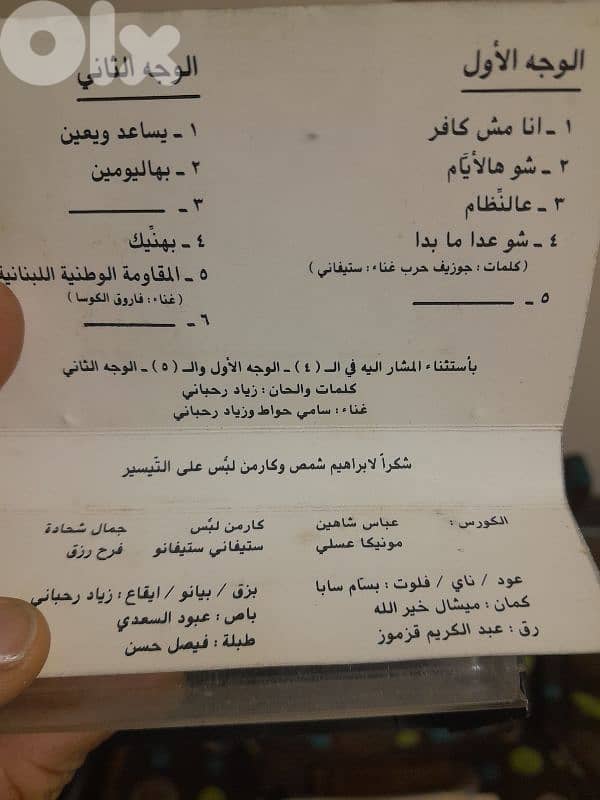 OLX
الوجه الأول
١ ـ انا مش كافر
٢ ـ شو هالأيَّام
٣ ـ عالنِّظام
٤ ـ شو عدا ما بدا
(كلمات : جوزيف حرب غناء : ستيفاني)
٥ ـ ــــــــــــ
الوجه الثاني
١ ـ يساعد ويعين
٢ ـ بهاليومين
٣ ـ ــــــــــــ
٤ ـ بهنِّيك
٥ ـ المقاومة الوطنية اللبنانية
(غناء : فاروق الكوسا)
٦ ـ ــــــــــــ
بأستثناء المشار اليه في الـ (٤) ـ الوجه الأول والـ (٥) ـ الوجه الثاني
كلمات والحان : زياد رحباني
غناء : سامي حواط وزياد رحباني
شكراً لابراهيم شمص وكارمن لبُس على التّيسير
الكورس : عباس شاهين كارمن لبُس جمال شحادة
مونيكا عسلي ستيفاني ستيفانو فرح رزق
عود / ناي / فلوت : بسّام سابا بزق / بيانو / ايقاع : زياد رحباني
كمان : ميشال خير الله باص : عبود السعدي
رق : عبد الكريم قزموز طبلة : فيصل حسن